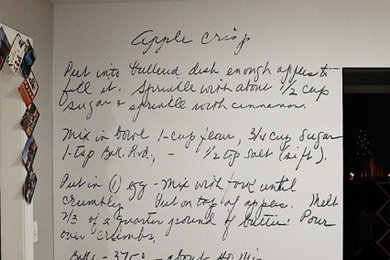 Apple Crisp
Put into buttered dish enough apples to
fill it. Sprinkle with about 1/2 cup
sugar & sprinkle with cinnamon.
Mix in bowl 1-cup flour, 3/4 cup sugar
1-tsp Bak. Pod., - 1/2 tsp salt (sift).
Put in (1) egg - Mix with fork until
crumbly. Put on top of apples. Melt
1/3 of a quarter pound of butter. Pour
over crumbs.
Bake - 375° - about 40 Min.